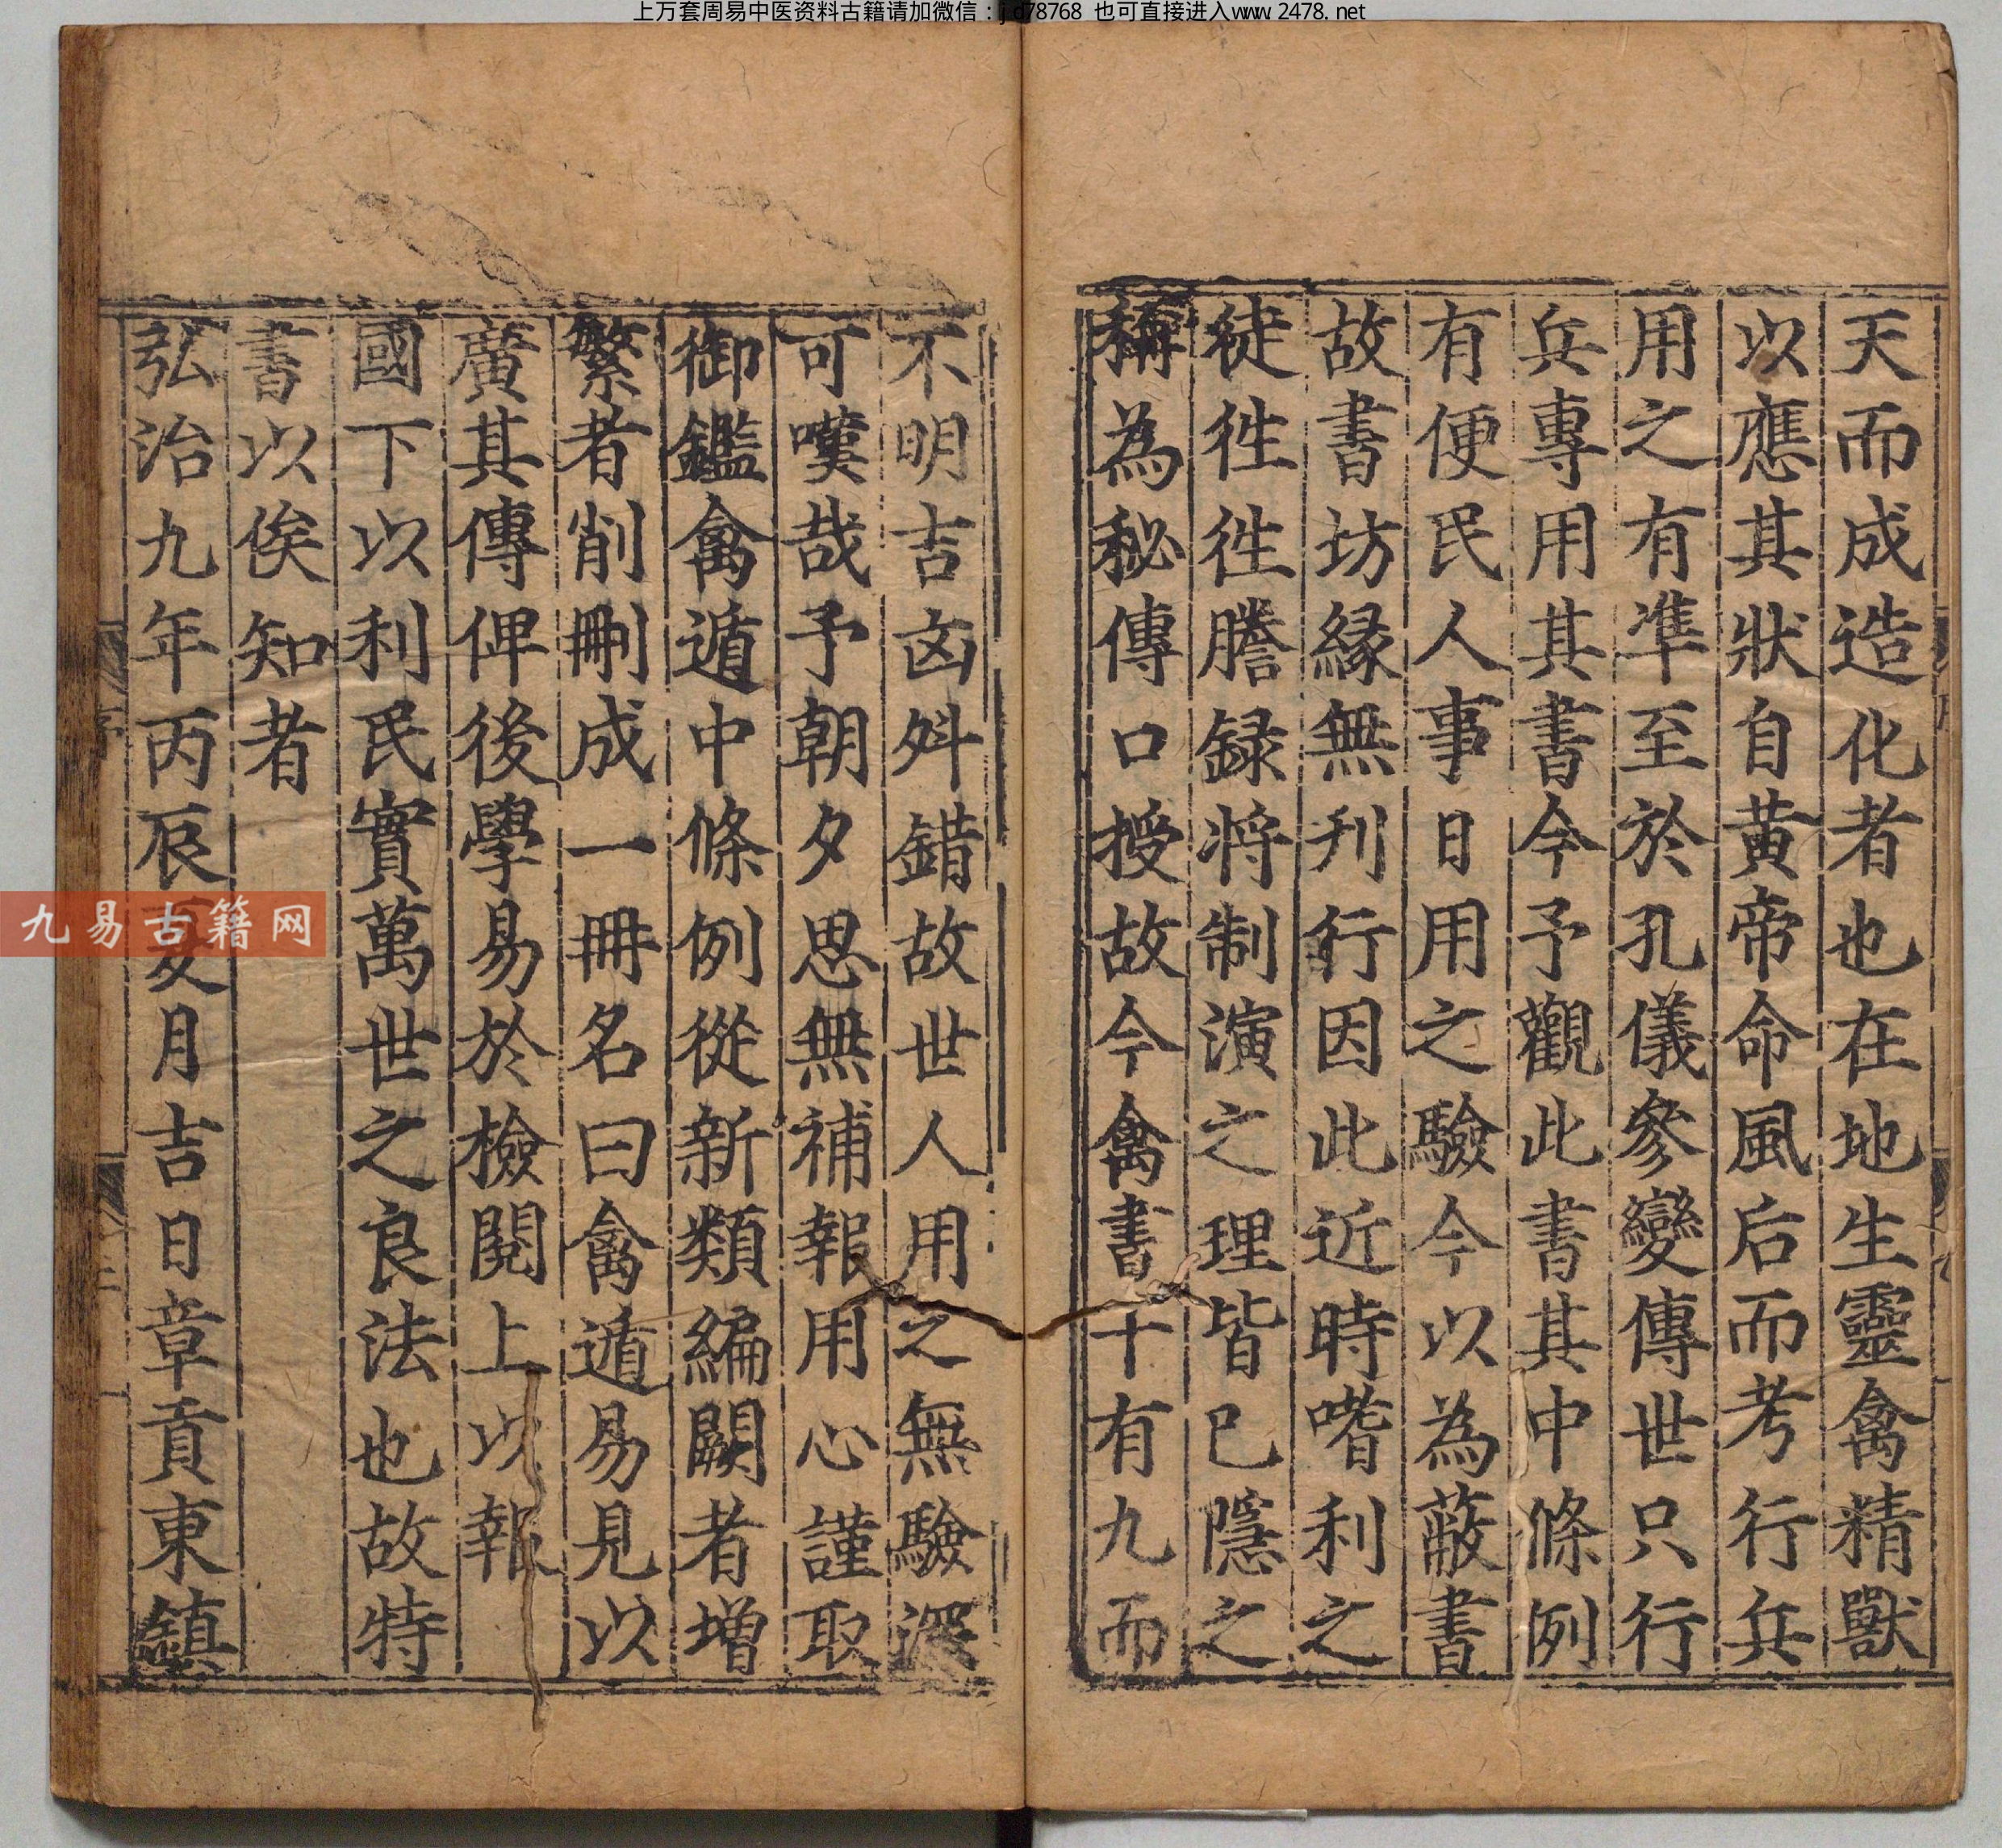 上万套周易中医资料古籍请加微信：jd78768 也可直接进入www.2478.net
天而成造化者也在地生靈禽精獸
以應其狀自黃帝命風后而考行兵
用之有準至於孔儀參變傳世只行
兵專用其書今予觀此書其中條例
有便民人事日用之驗今以為蔽書
故書坊緣無刋行因此近時嗜利之
徒徃徃謄録將制演之理皆已隱之
稱為秘傳口授故今禽書十有九而
不明吉凶舛錯故世人用之無驗深
可嘆哉予朝夕思無補報用心謹取
御鑑禽遁中條例從新類編闕者增
繁者削刪成一冊名曰禽遁易見以
廣其傳俾後學易於檢閱上以報
國下以利民實萬世之良法也故特
書以俟知者
弘治九年丙辰夏月吉日章貢東鎮
九易古籍网